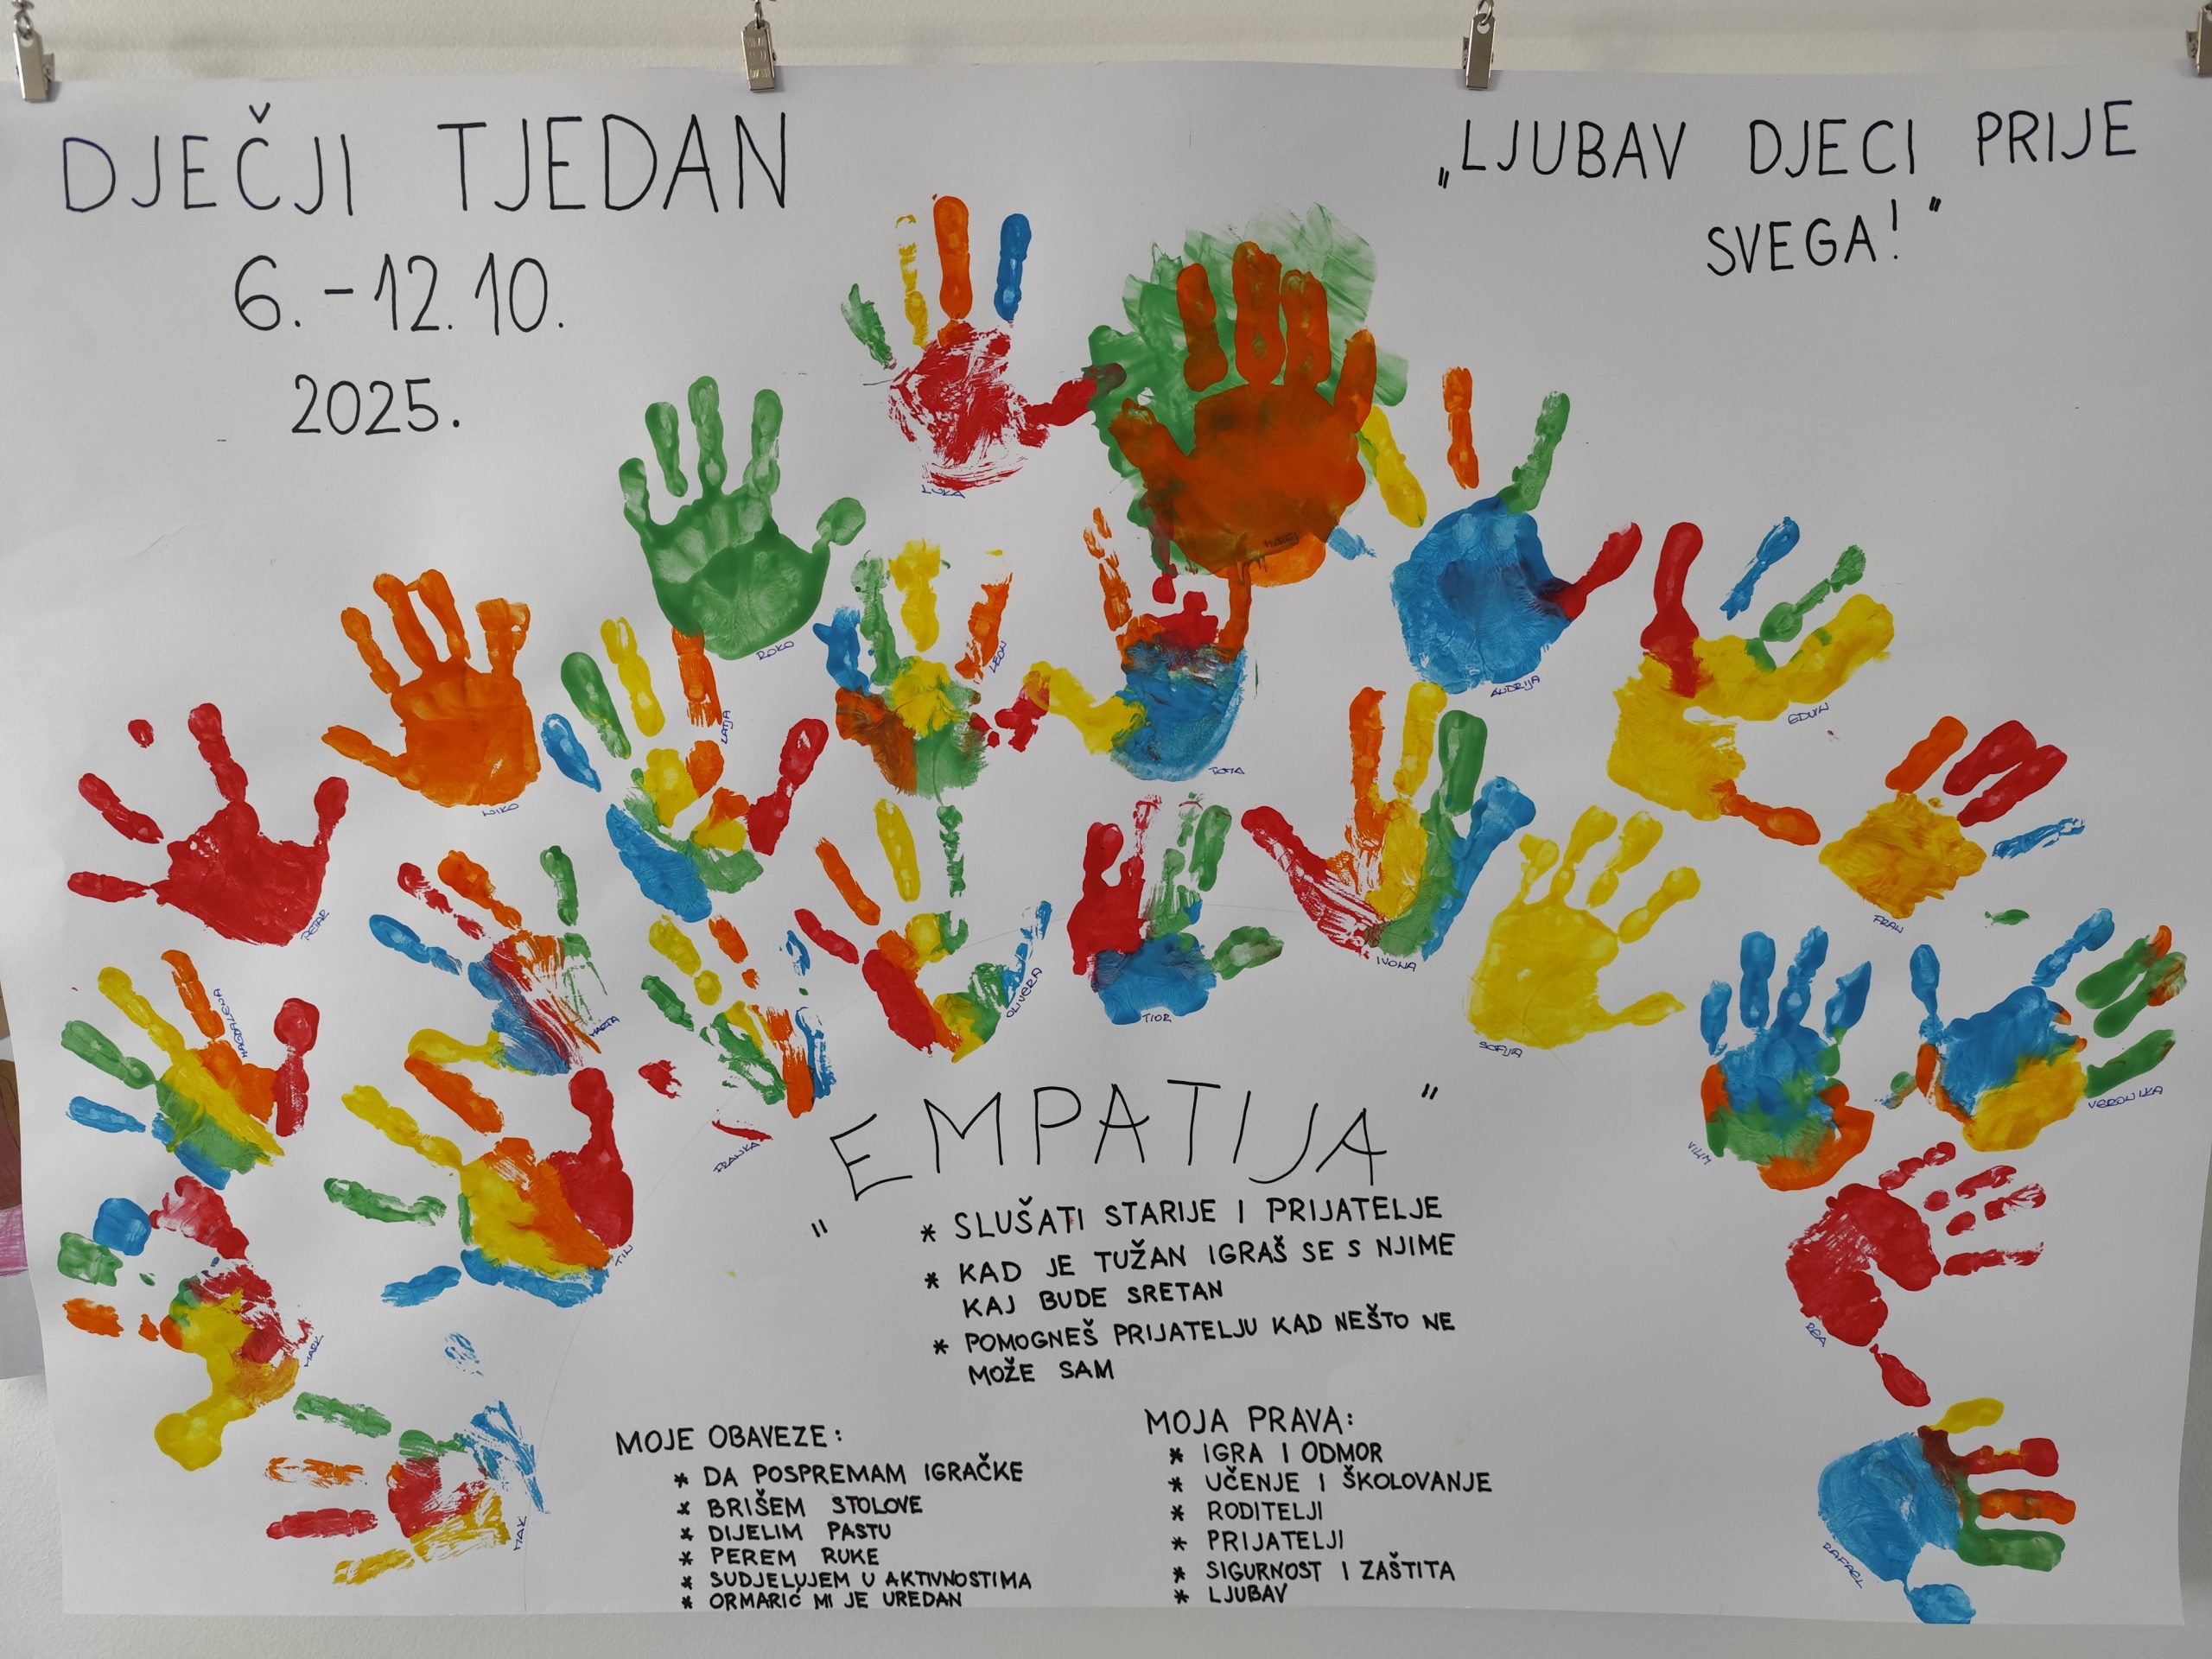 DJEČJI TJEDAN
6. - 12. 10.
2025.
„LJUBAV DJECI PRIJE
SVEGA!"
LUKA
ROKO
LEON
ANDRIJA
EDVIN
TOMA
NIKO
PETAR
FRAN
IVONA
MAGDALENA
MARTA
OLIVERA
TIOR
SOFIJA
VERONIKA
VILIM
FRANKA
TIN
MARK
REA
MAK
RAFAEL
"EMPATIJA"
* SLUŠATI STARIJE I PRIJATELJE
* KAD JE TUŽAN IGRAŠ SE S NJIME
KAJ BUDE SRETAN
* POMOGNEŠ PRIJATELJU KAD NEŠTO NE
MOŽE SAM
MOJE OBAVEZE:
* DA POSPREMAM IGRAČKE
* BRIŠEM STOLOVE
* DIJELIM PASTU
* PEREM RUKE
* SUDJELUJEM U AKTIVNOSTIMA
* ORMARIĆ MI JE UREDAN
MOJA PRAVA:
* IGRA I ODMOR
* UČENJE I ŠKOLOVANJE
* RODITELJI
* PRIJATELJI
* SIGURNOST I ZAŠTITA
* LJUBAV